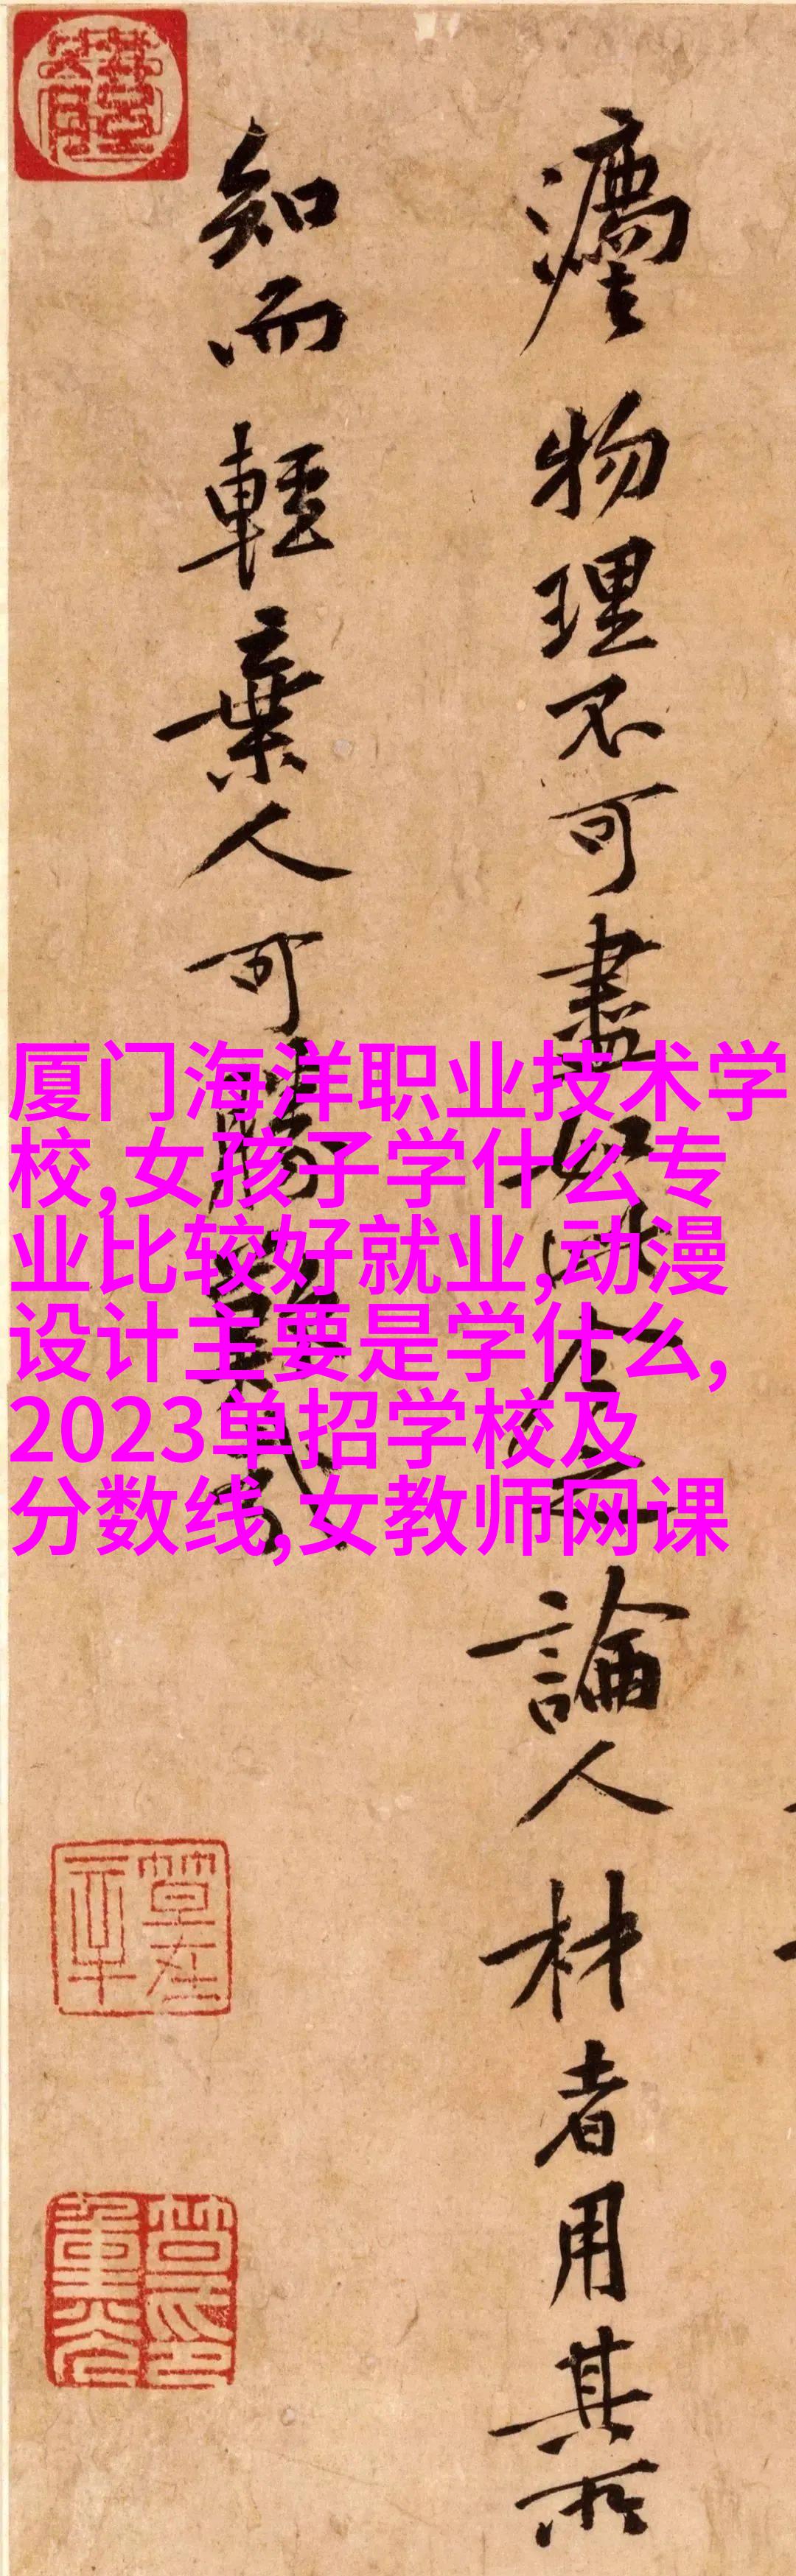 物理不可盡如此今之論人材者用其所
知而輕棄人可勝
厦门海洋职业技术学
校,女孩子学什么专
业比较好就业,动漫
设计主要是学什么,
2023单招学校及
分数线,女教师网课